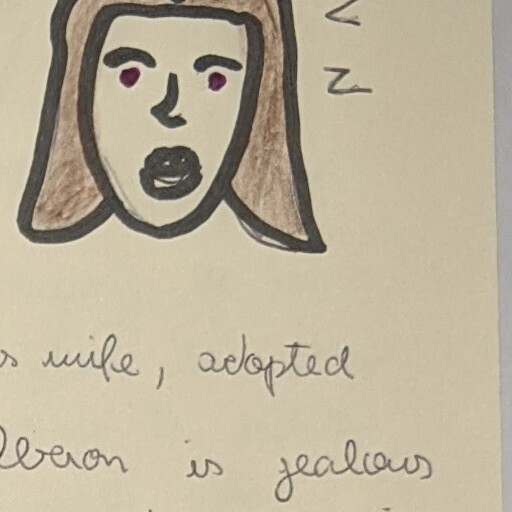 Z
s wife, adopted
Oberon is jealous